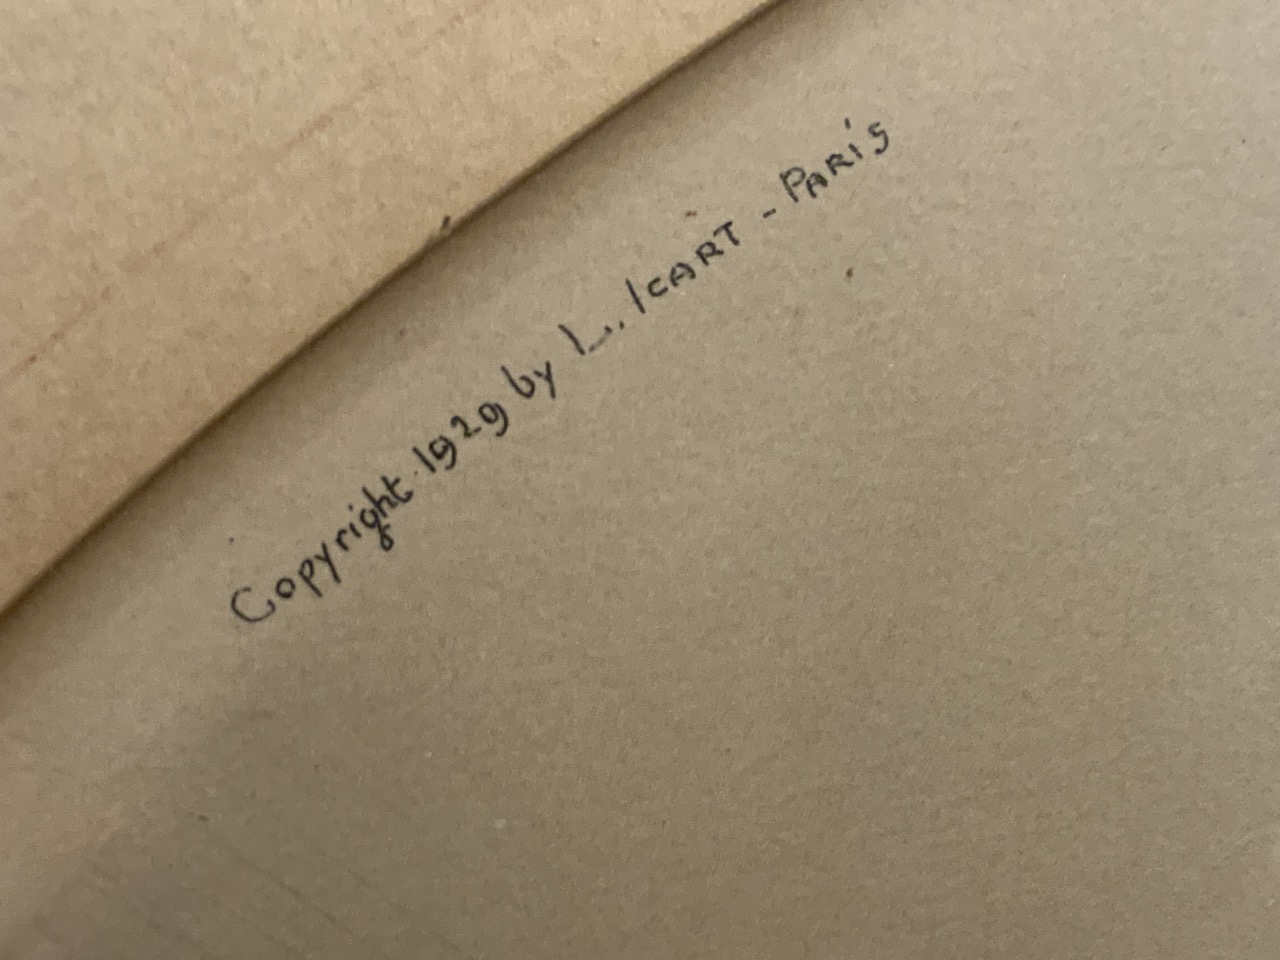 Copyright 1929 by L. ICART - PARIS